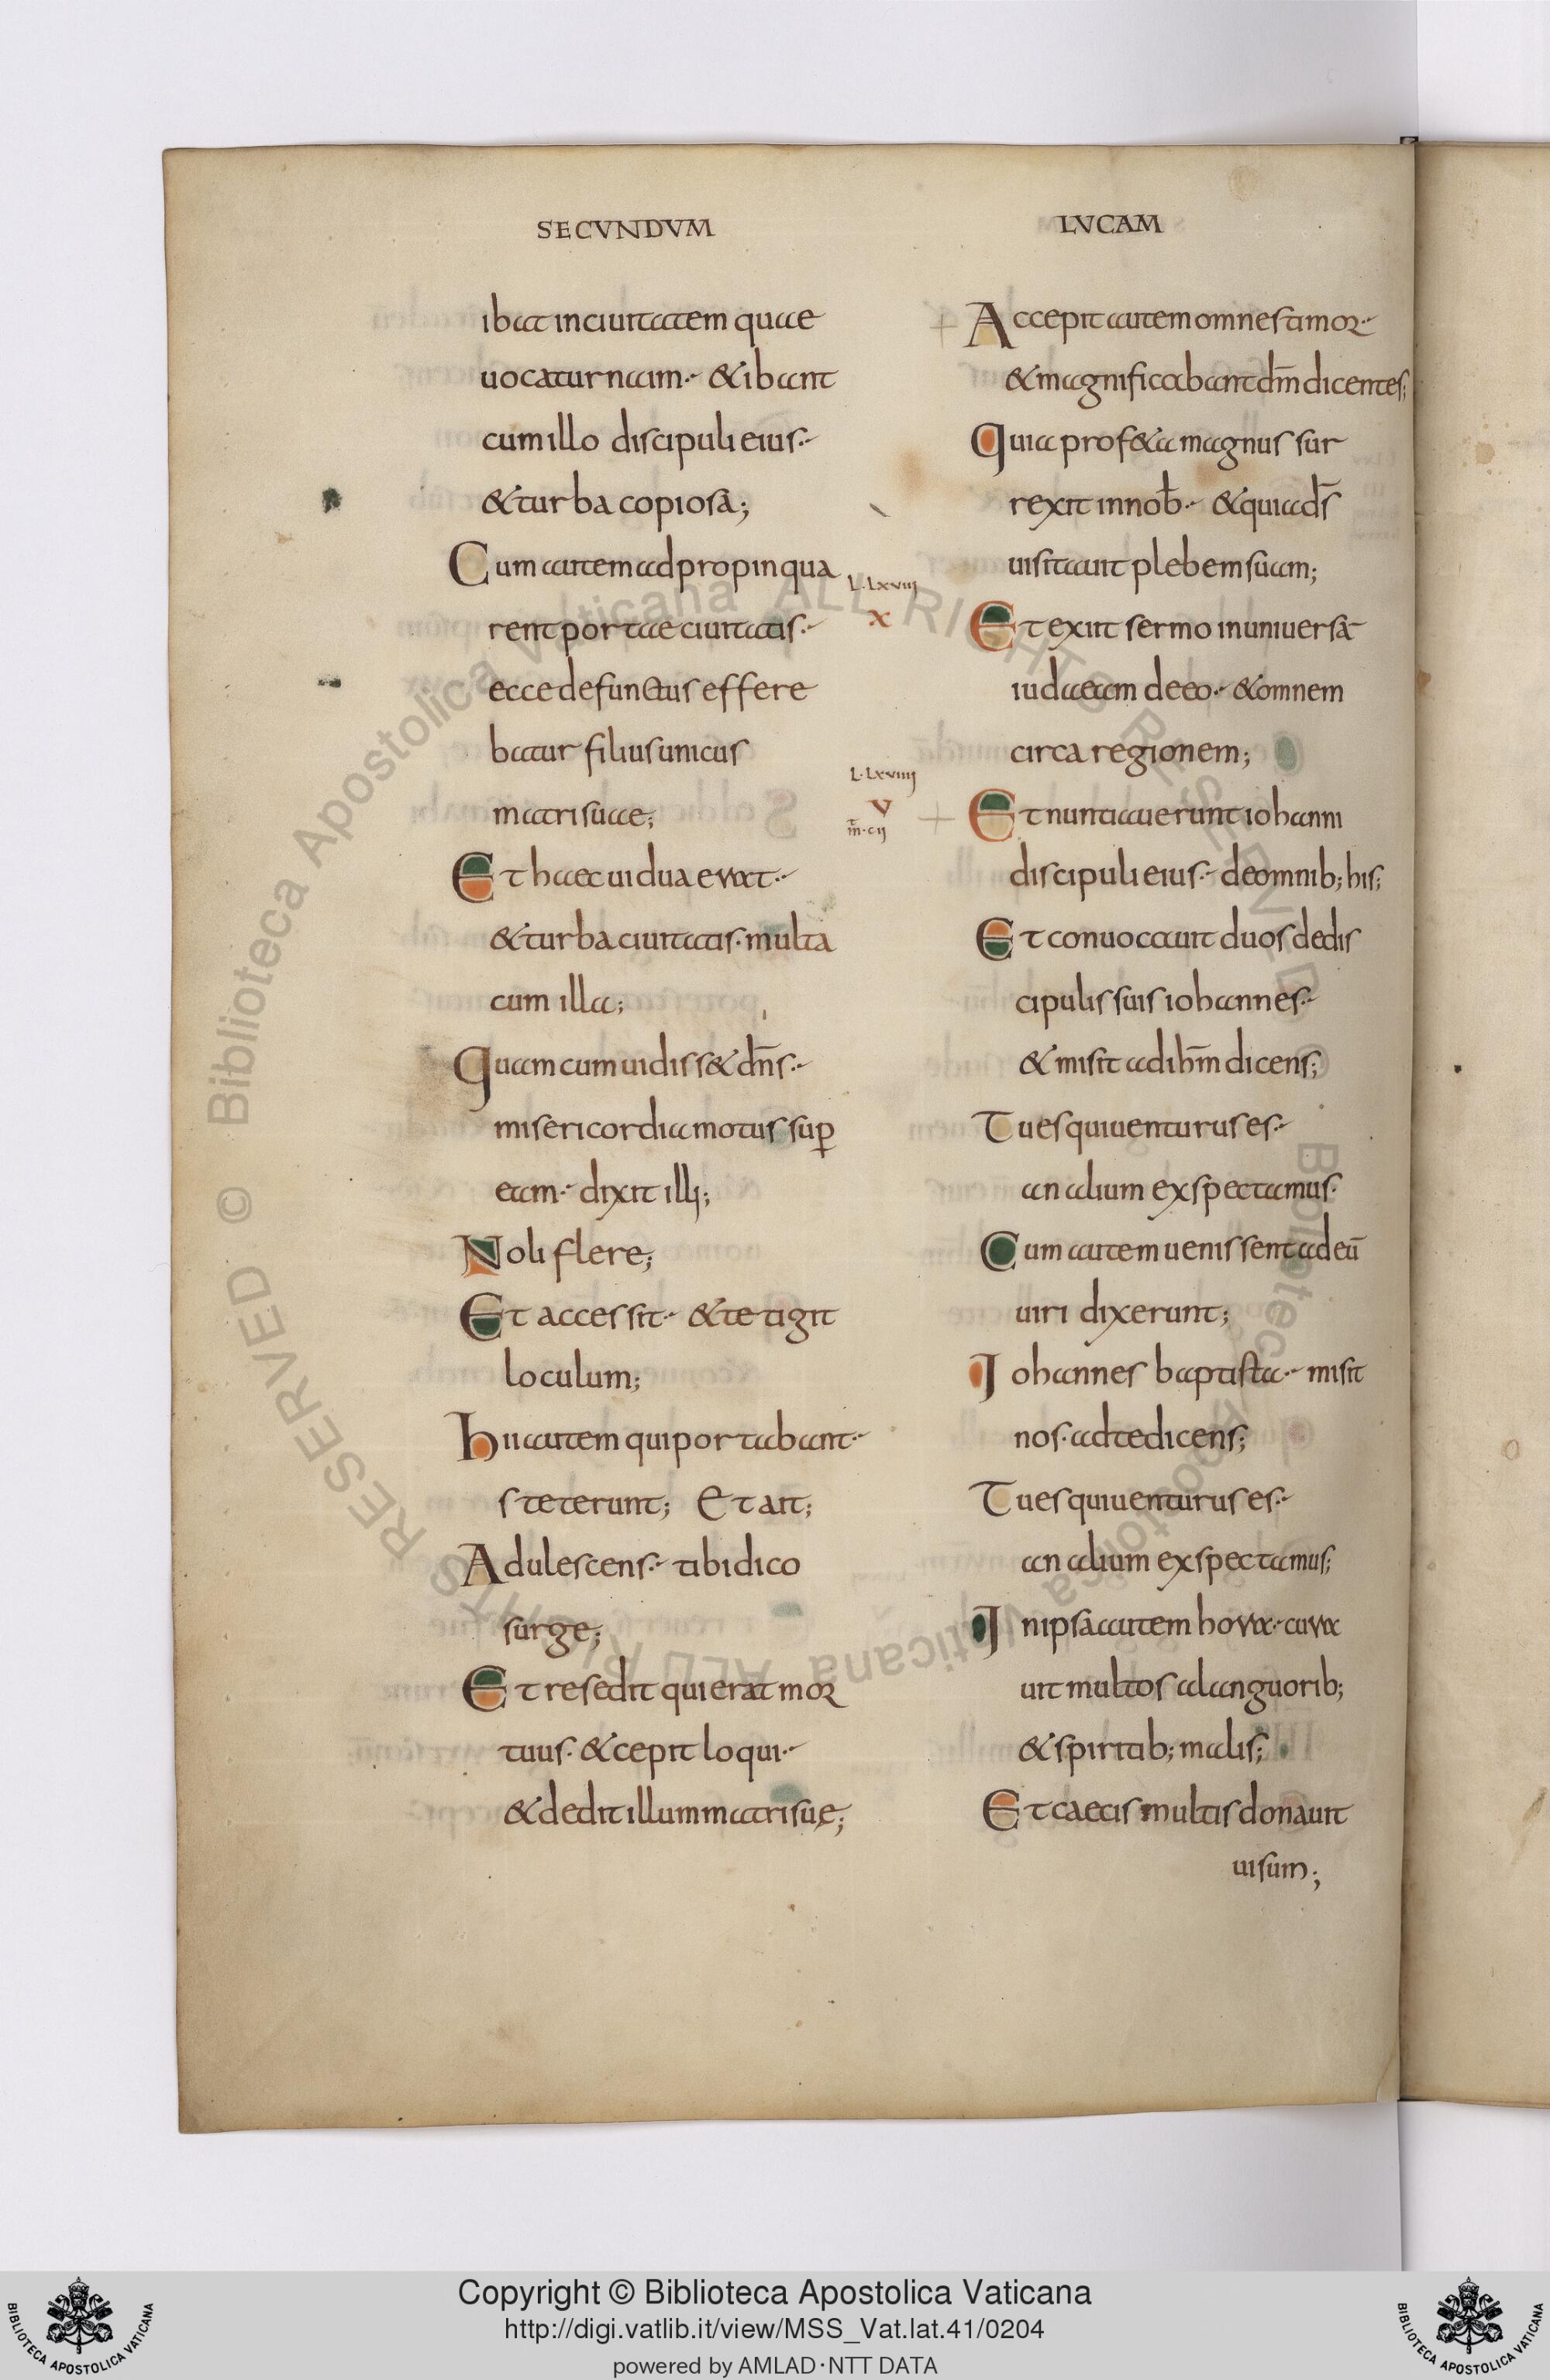 SECVNDVM
ibat in ciuitatem quae
uocatur naim· & ibant
cum illo discipuli eius·
& turba copiosa;
Cum autem adpropinqua
rent portae ciuitatis·
ecce defunctus effere
batur filius unicus
matri suae;
Et haec uidua erat·
& turba ciuitatis· multa
cum illa;
Quam cum uidiss& dn̄s·
misericordia motus sup̄
eam· dixit illi;
Noli flere;
Et accessit· & tetigit
loculum;
hii autem qui portabant·
steterunt; Et ait;
Adulescens· tibi dico
surge;
Et resedit qui erat mor
tuus· & cepit loqui·
& dedit illum matri suę;
L·LXVIII
X
L·LXVIIII
V
m̄t·cıı
LVCAM
Accepit autem omnes timor·
& magnificabant dm̄ dicentes;
Quia prof&a magnus sur
rexit in nob̄· & quia ds̄
uisitauit plebem suam;
Et exiit sermo in uniuersā
iudaeam de eo· & omnem
circa regionem;
Et nuntiauerunt iohanni
discipuli eius· de omnib; his;
Et conuocauit duos de dis
cipulis suis iohannes·
& misit ad ihm̄ dicens;
Tu es qui uenturus es·
an alium exspectamus·
Cum autem uenissent ad eū
uiri dixerunt;
Iohannes baptista· misit
nos· ad te dicens;
Tu es qui uenturus es·
an alium exspectamus;
In ipsa autem hora· cura
uit multos a languorib;
& spiritib; malis;
Et caecis multis donauit
uisum;
© Biblioteca Apostolica Vaticana ALL RIGHTS RESERVED
Copyright © Biblioteca Apostolica Vaticana
http://digi.vatlib.it/view/MSS_Vat.lat.41/0204
powered by AMLAD·NTT DATA
BIBLIOTECA APOSTOLICA VATICANA
BIBLIOTECA APOSTOLICA VATICANA